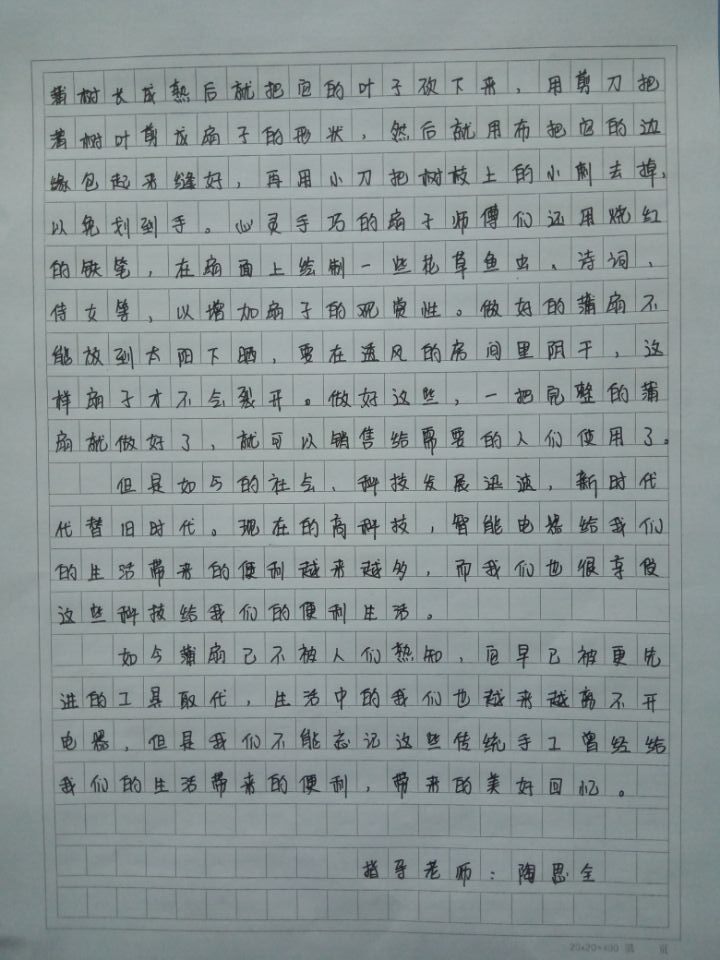 蒲树长成熟后就把它的叶子砍下来，用剪刀把
着树叶剪成扇子的形状，然后就用布把它的边
缘包起来缝好，再用小刀把树枝上的小刺去掉，
以免划到手。心灵手巧的扇子师傅们还用烧红
的铁笔，在扇面上绘制一些花草鱼虫、诗词、
侍女等，以增加扇子的观赏性。做好的蒲扇不
能放到太阳下晒，要在透风的房间里阴干，这
样扇子才不会裂开。做好这些，一把完整的蒲
扇就做好了，就可以销售给需要的人们使用了。
但是如今的社会、科技发展迅速，新时代
代替旧时代。现在的高科技，智能电器给我们
的生活带来的便利越来越多，而我们也很享受
这些科技给我们的便利生活。
如今蒲扇已不被人们熟知，它早已被更先
进的工具取代，生活中的我们也越来越离不开
电器，但是我们不能忘记这些传统手工曾经给
我们的生活带来的便利，带来的美好回忆。
指导老师：陶思全
20×20=400 第 页